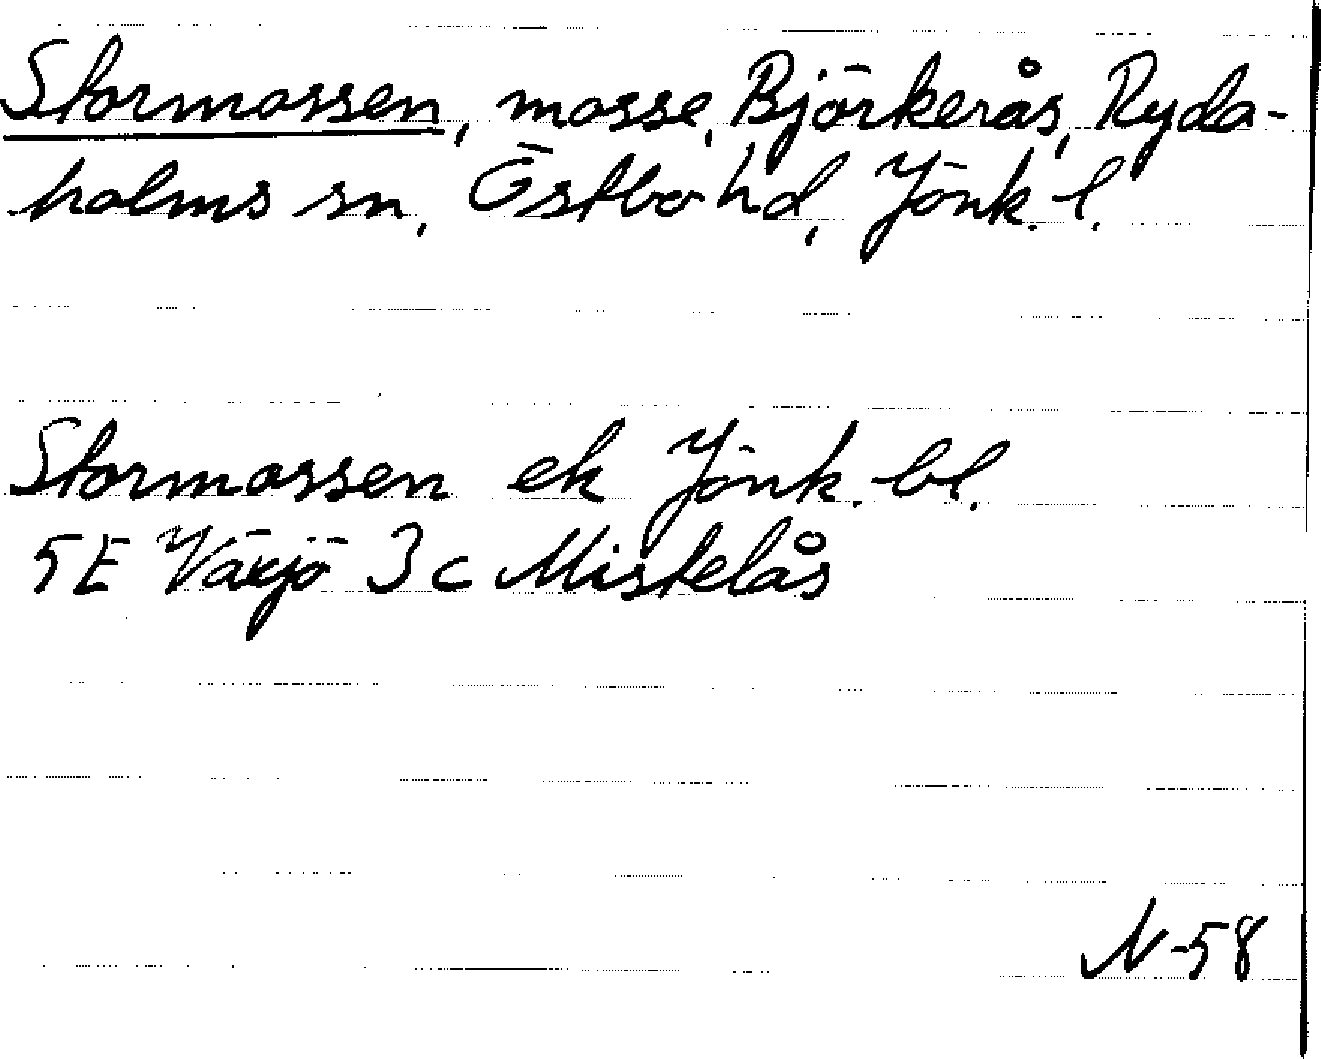 Stormossen, mosse, Björkerås, Ryda-
holms sn, Östbo hd, Jönk. l.
Stormossen ek Jönk. bl.
5E Växjö 3c Mistelås
N-58